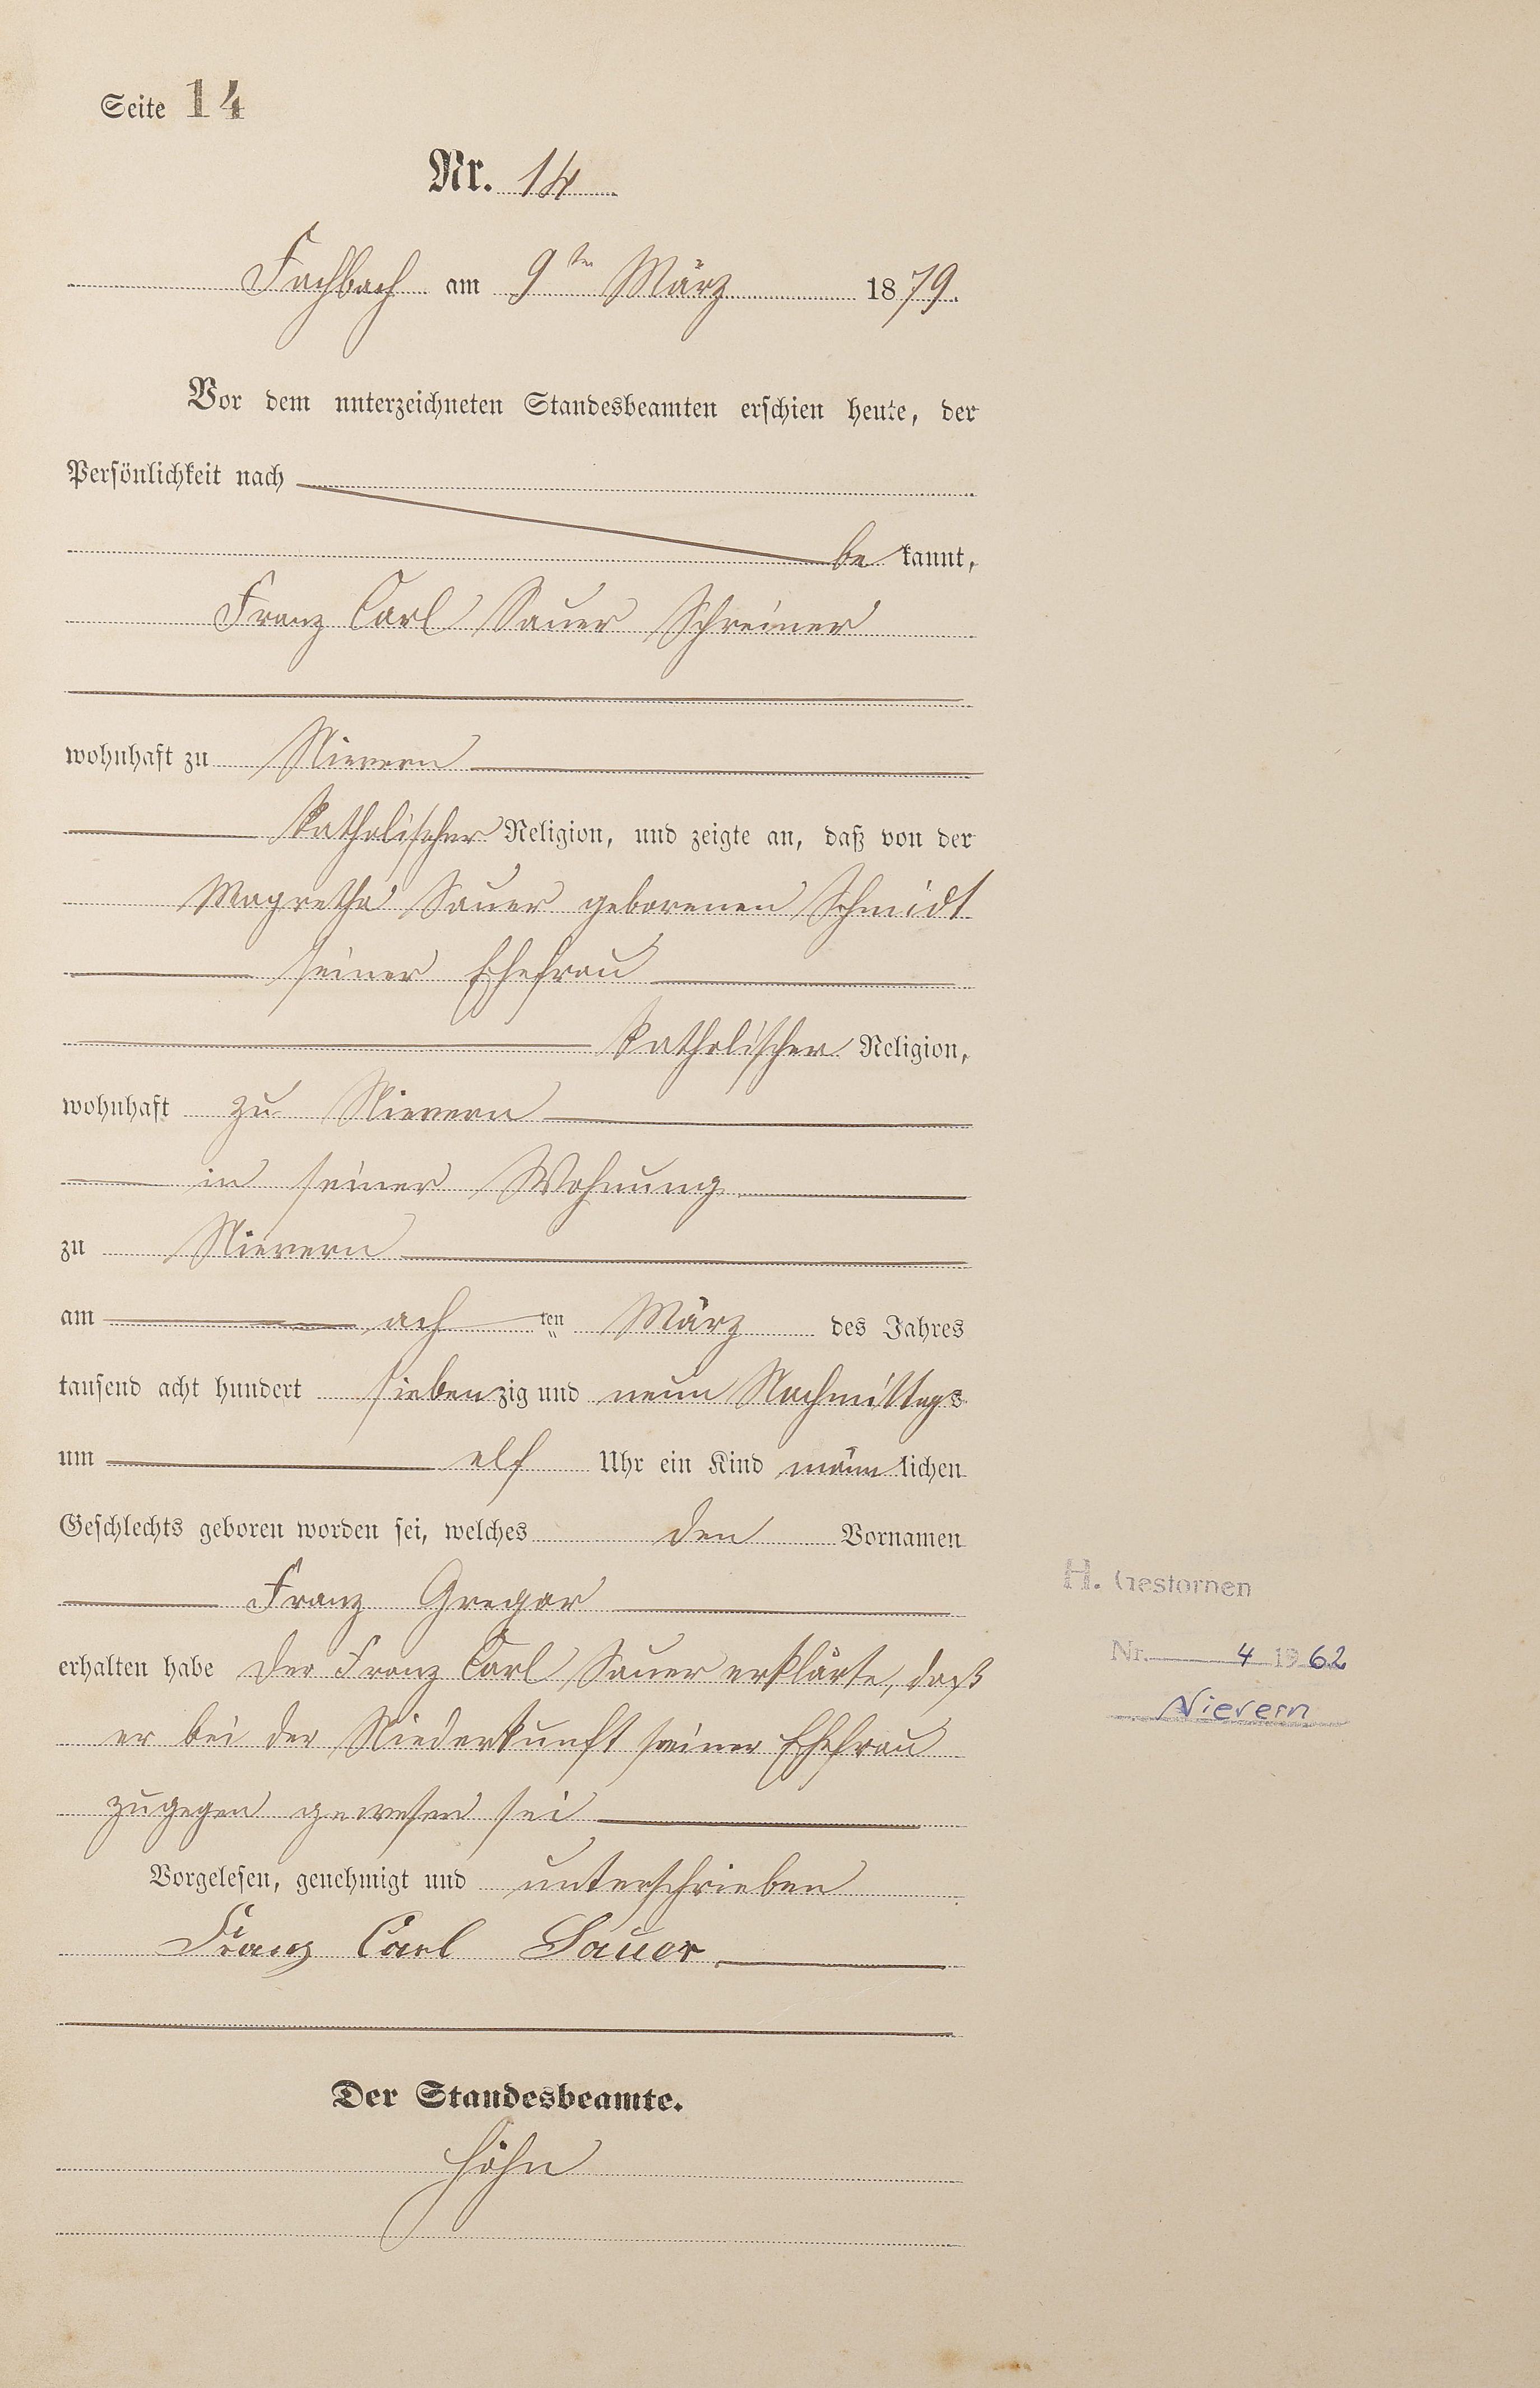 Seite 14
Nr. 14
Fachbach am 9ten März 1879.
Vor dem unterzeichneten Standesbeamten erschien heute, der
Persönlichkeit nach
be kannt,
Franz Carl Sauer Schreiner
wohnhaft zu Nievern
katholischer Religion, und zeigte an, daß von der
Magretha Sauer geborenen Schmidt
seiner Ehefrau
katholischer Religion,
wohnhaft zu Nievern
in seiner Wohnung
zu Nievern
am ach ten März des Jahres
tausend acht hundert siebenzig und neun Nachmittags
um elf Uhr ein Kind männlichen
Geschlechts geboren worden sei, welches den Vornamen
Franz Gregor
erhalten habe der Franz Carl Sauer erklärte, daß
er bei der Niederkunft seiner Ehefrau
zugegen gewesen sei
Vorgelesen, genehmigt und unterschrieben
Franz Carl Sauer
Der Standesbeamte.
Höhn
H. Gestorben
Nr. 4 1962
Nievern